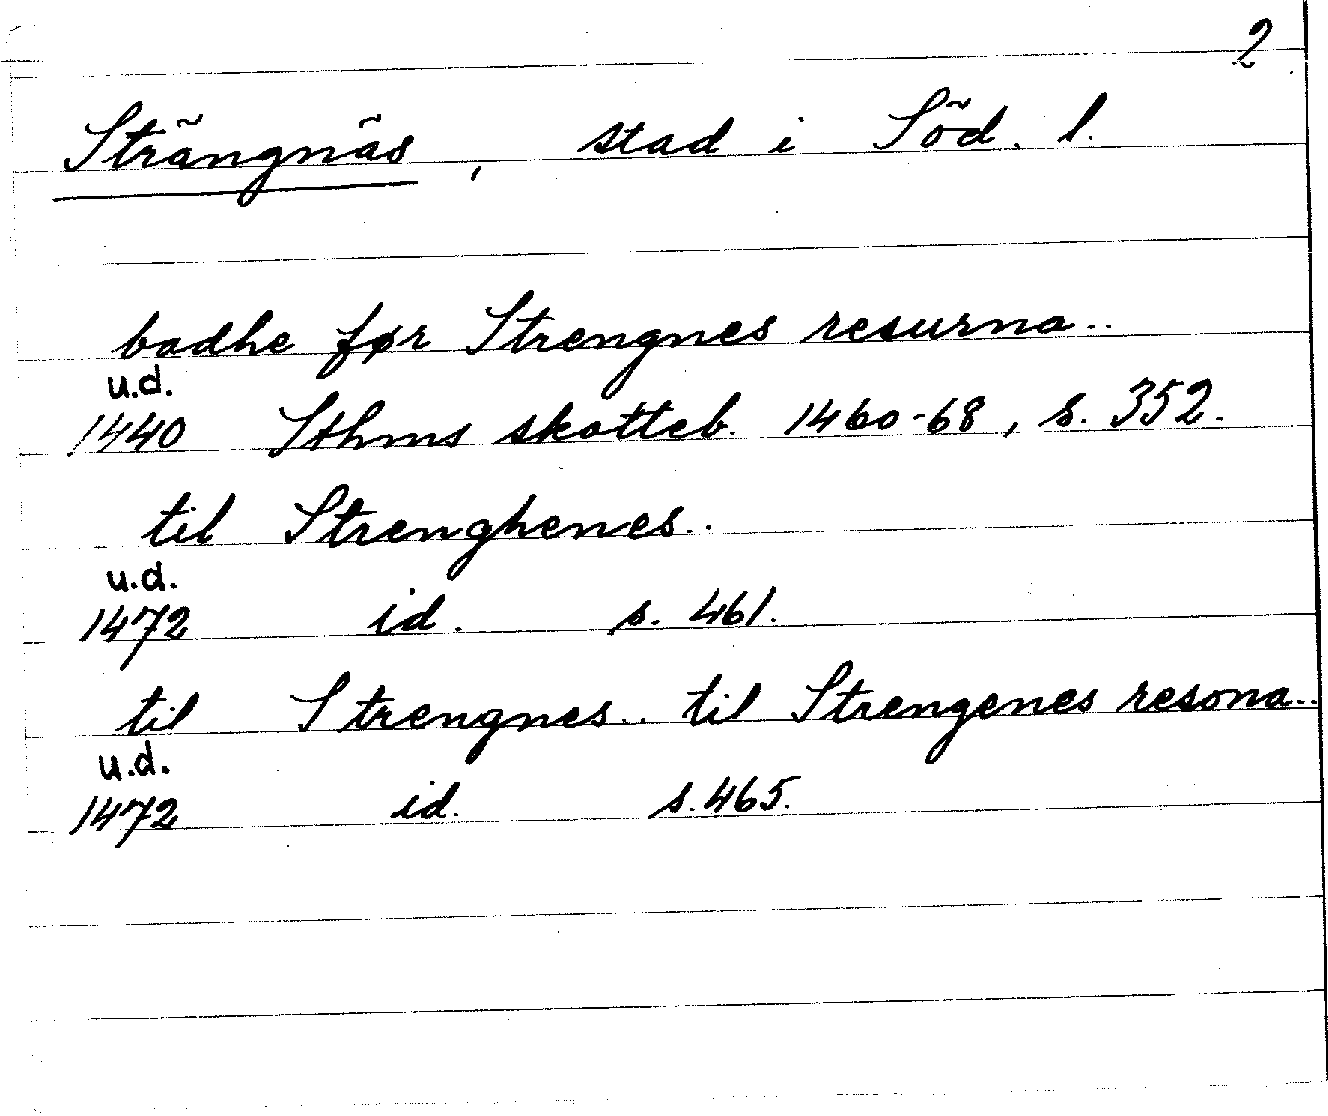 2
Strängnäs, stad i Söd. l.
badhe før Strengnes resurna..
u.d.
1440 Sthms skotteb. 1460-68, s. 352.
til Strenghenes..
u.d.
1472 id. s. 461.
til Strengnes.. til Strengenes resona..
u.d.
1472 id. s. 465.